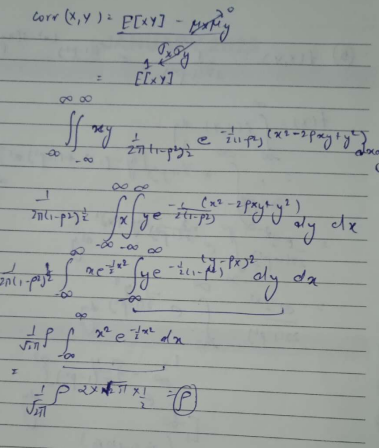 corr(x,y) = E[xy] - μxμy → 0
σxσy
1
= E[xy]
∞ ∞
∫∫ xy 1/2π(1-ρ²)^½ e^-1/2(1-ρ²) (x²-2ρxy+y²) dxdy
-∞ -∞
1/2π(1-ρ²)^½ ∫x∫ye^-1/2(1-ρ²) (x²-2ρxy+y²) dy dx
1/2π(1-ρ²)^½ ∫xe^-½x² ∫ye^-1/2(1-ρ²) (y-ρx)² dy dx
1/√2π ρ ∫ x² e^-½x² dx
=
1/√2π ρ 2x √π x 1/2 = ρ